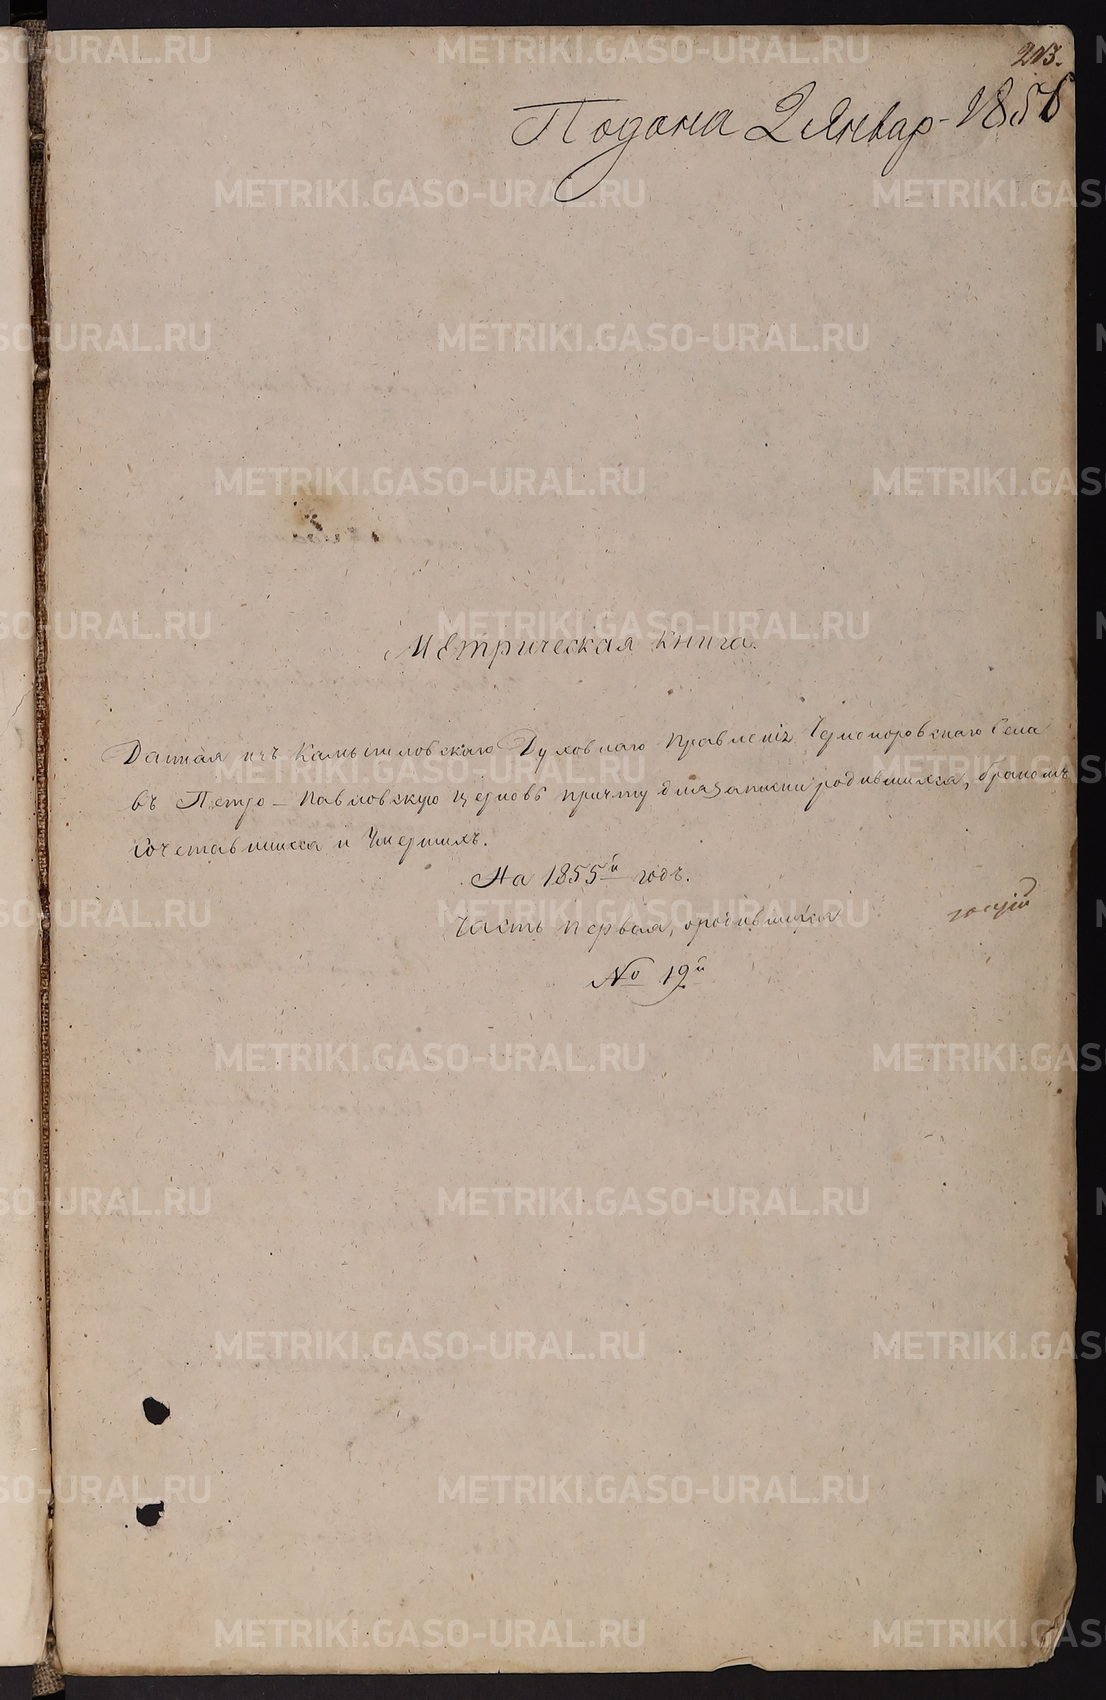 213.
Подана 2 Январ- 1856
Метрическая книга.
Данная изъ Камышловскаго Духовнаго Правленія Черемховскаго Села
въ Петро-Павловскую церковь причту для записки родившихся, бракомъ
сочетавшихся и Умершихъ.
На 1855й годъ.
Часть первая, о родившихся
№ 19й
METRIKI.GASO-URAL.RU